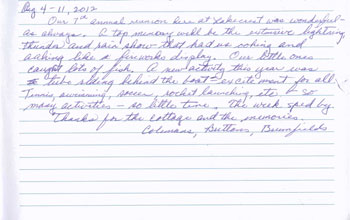 Aug 4-11, 2012
Our 7th annual reunion here at Lakecrest was wonderful-
as always. A top memory will be the extensive lightning
thunder and rain show - that had us oohing and
aahing like a fireworks display. Our little ones
caught lots of fish. A new activity this year was
tube skiing behind the boat - excitement for all.
Tennis, swimming, soccer, rocket launching, etc - so
many activities - so little time. The week sped by.
Thanks for the cottage and the memories.
Colemans, Buttons, Brumfields